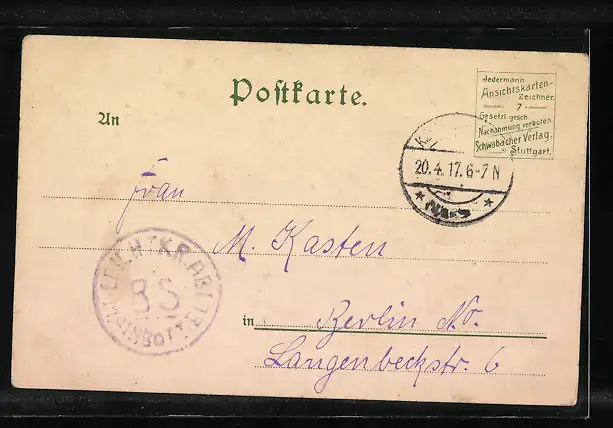 Postkarte.
Jedermann
Ansichtskarten-
Zeichner.
7
Gesetzl. gesch.
Nachahmung verboten.
Schwabacher Verlag,
Stuttgart.
An
20.4.17.6-7N
Frau
M. Kasten
BS
in Berlin No.
Langenbeckstr. 6